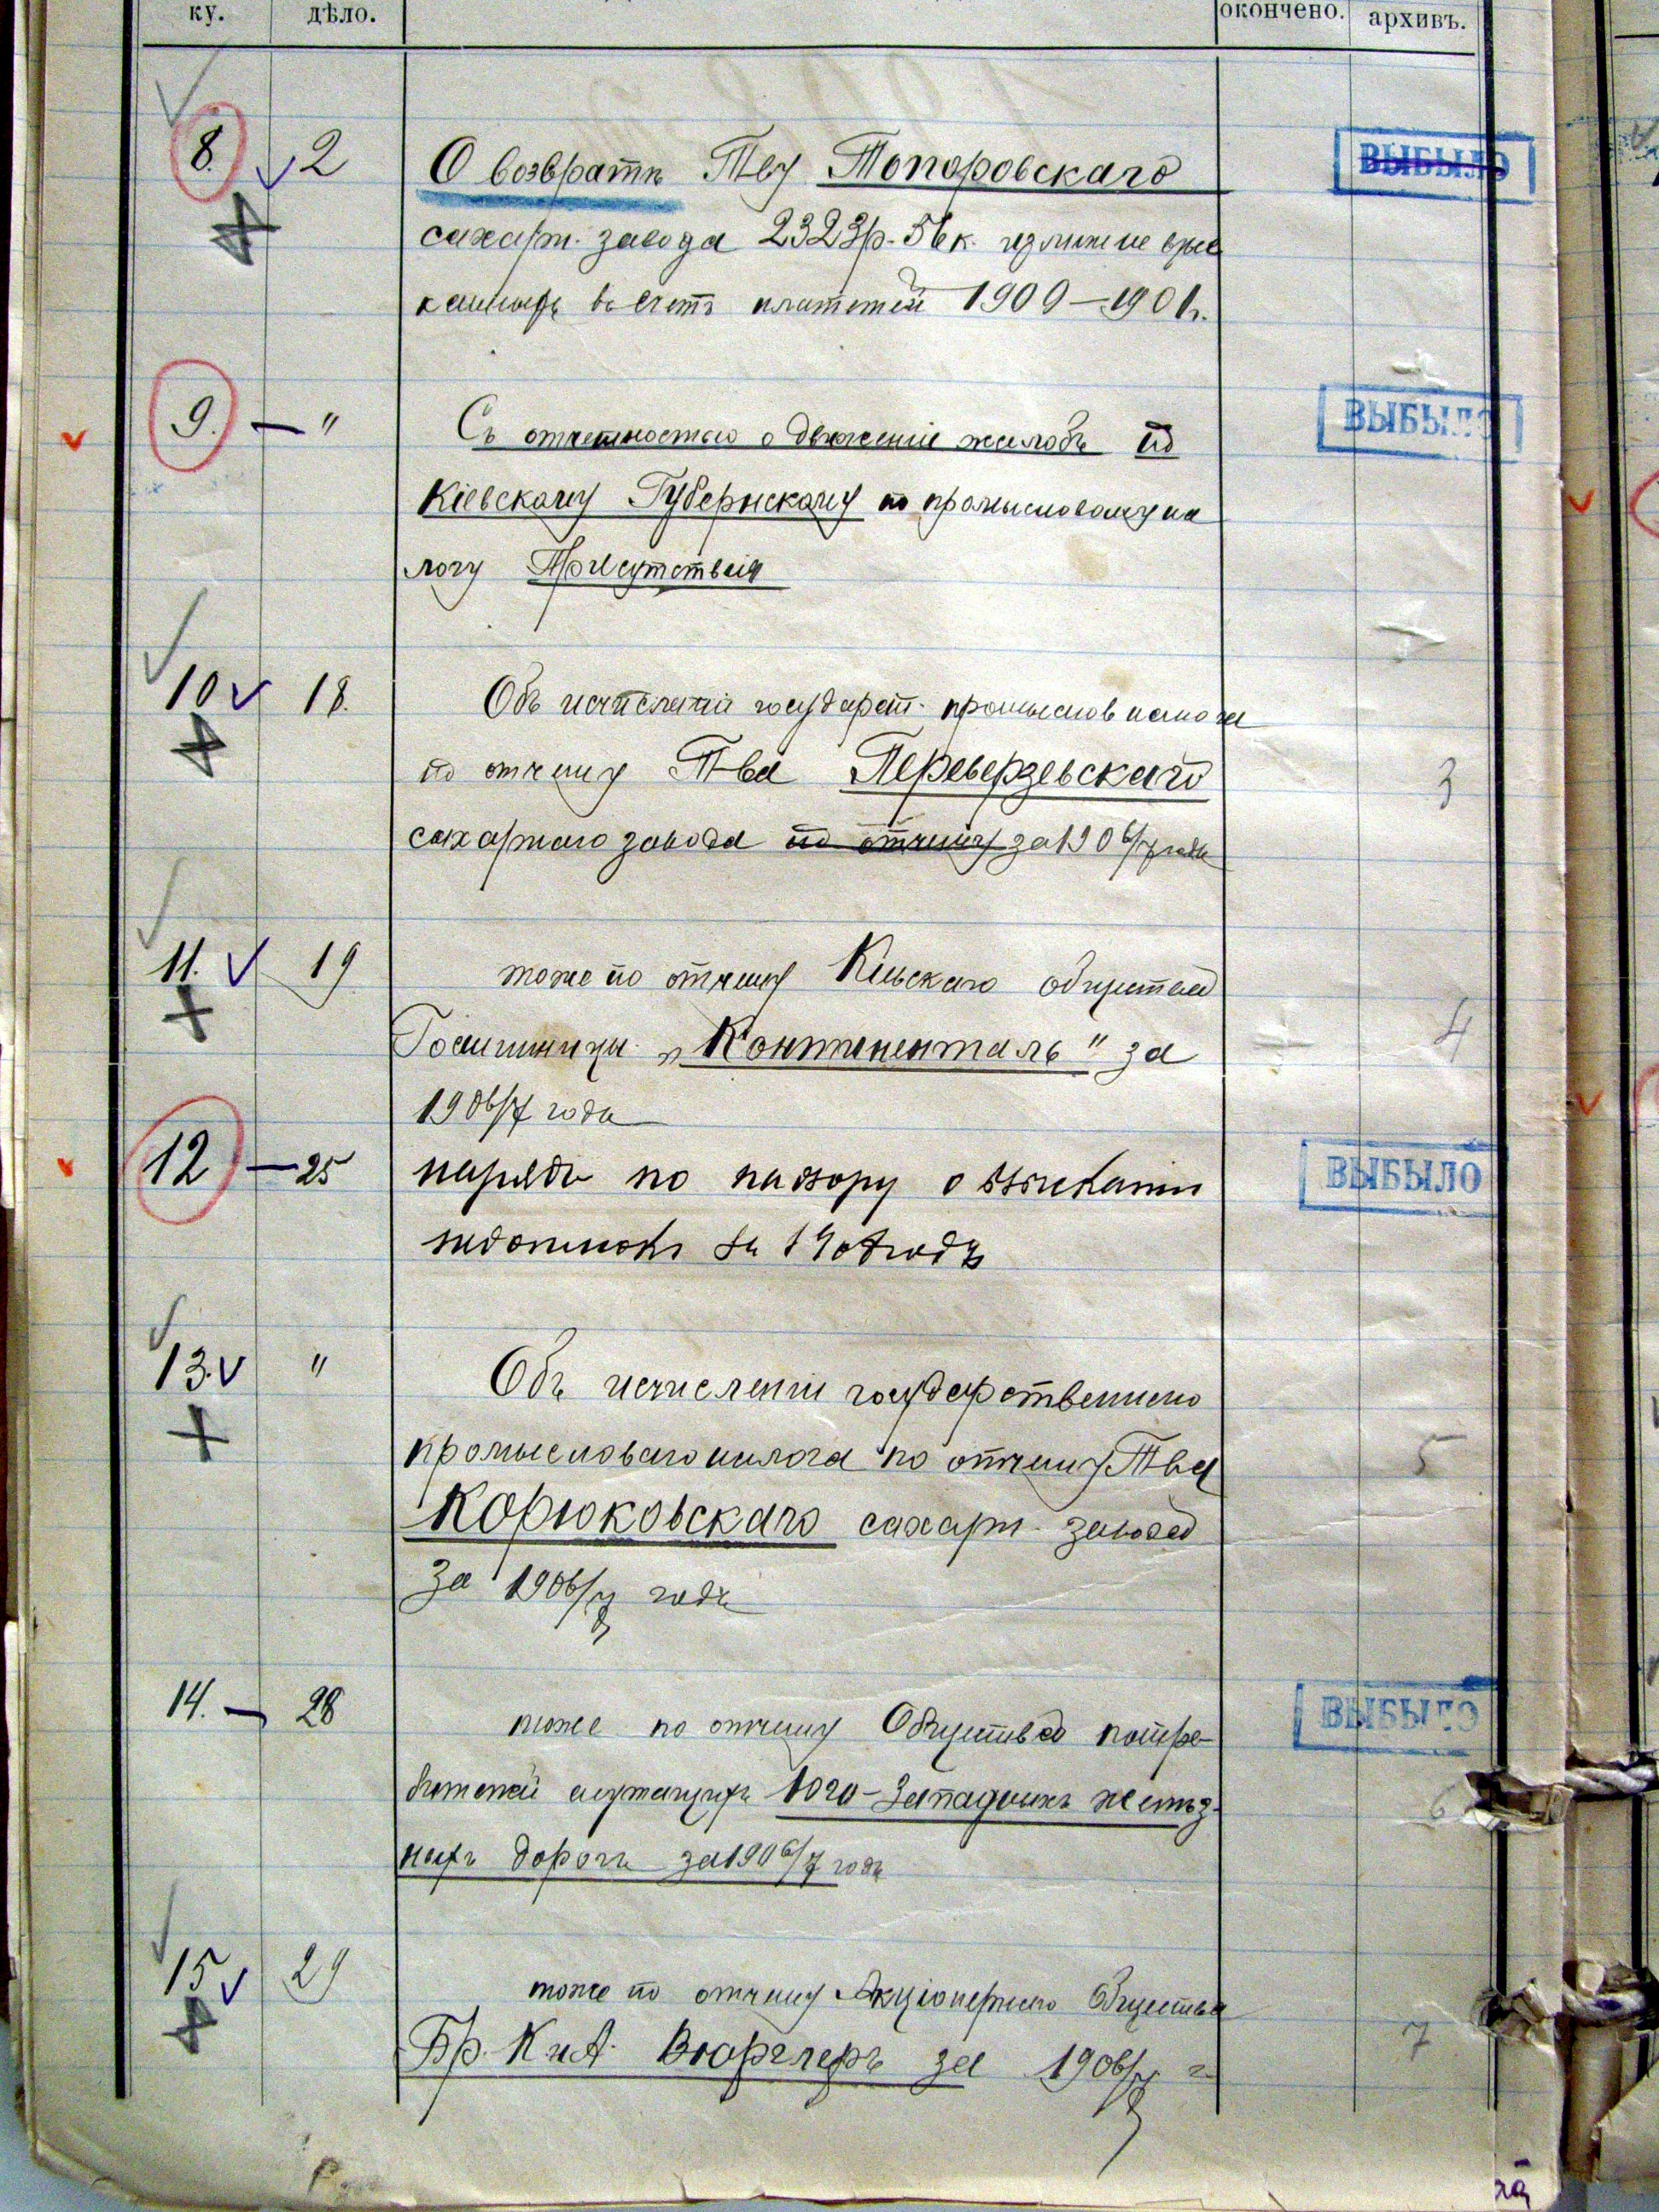 ку. дѣло. окончено. архивъ.
8. 2 О возвратѣ Тву Топоровскаго ВЫБЫЛО
сахарн. завода 2323р. 56к. излишне взыс
канныхъ въ счетъ платежей 1900-1901г.
9. — " Съ отчетностью о движеніи жалобъ по ВЫБЫЛО
Кіевскому Губернскому по промысловому на
логу Присутствія
10 18. Объ исчисленіи государст. промыслов налога
по отчету Т-ва Переверзевскаго 3
сахарнаго завода по отчету за 1906/7 годъ
11. 19 тоже по отчету Кіевскаго общества
Гостинницы „Континенталь" за 4
1906/7 годъ
12 — 25 нарядъ по надзору о взысканіи ВЫБЫЛО
недоимокъ за 1907 годъ
13. " Объ исчисленіи государственнаго
промысловаго налога по отчету Тва 5
Корюковскаго сахарн. завода
за 1906/7 годъ
14. — 28 тоже по отчету Общества потре- ВЫБЫЛО
бителей служащихъ Юго-Западныхъ желѣз- 6
ныхъ дорогъ за 1906/7 годъ
15 29 тоже по отчету Акціонернаго Общества
Бр. К и А. Вюрглеръ за 1906/7 г. 7